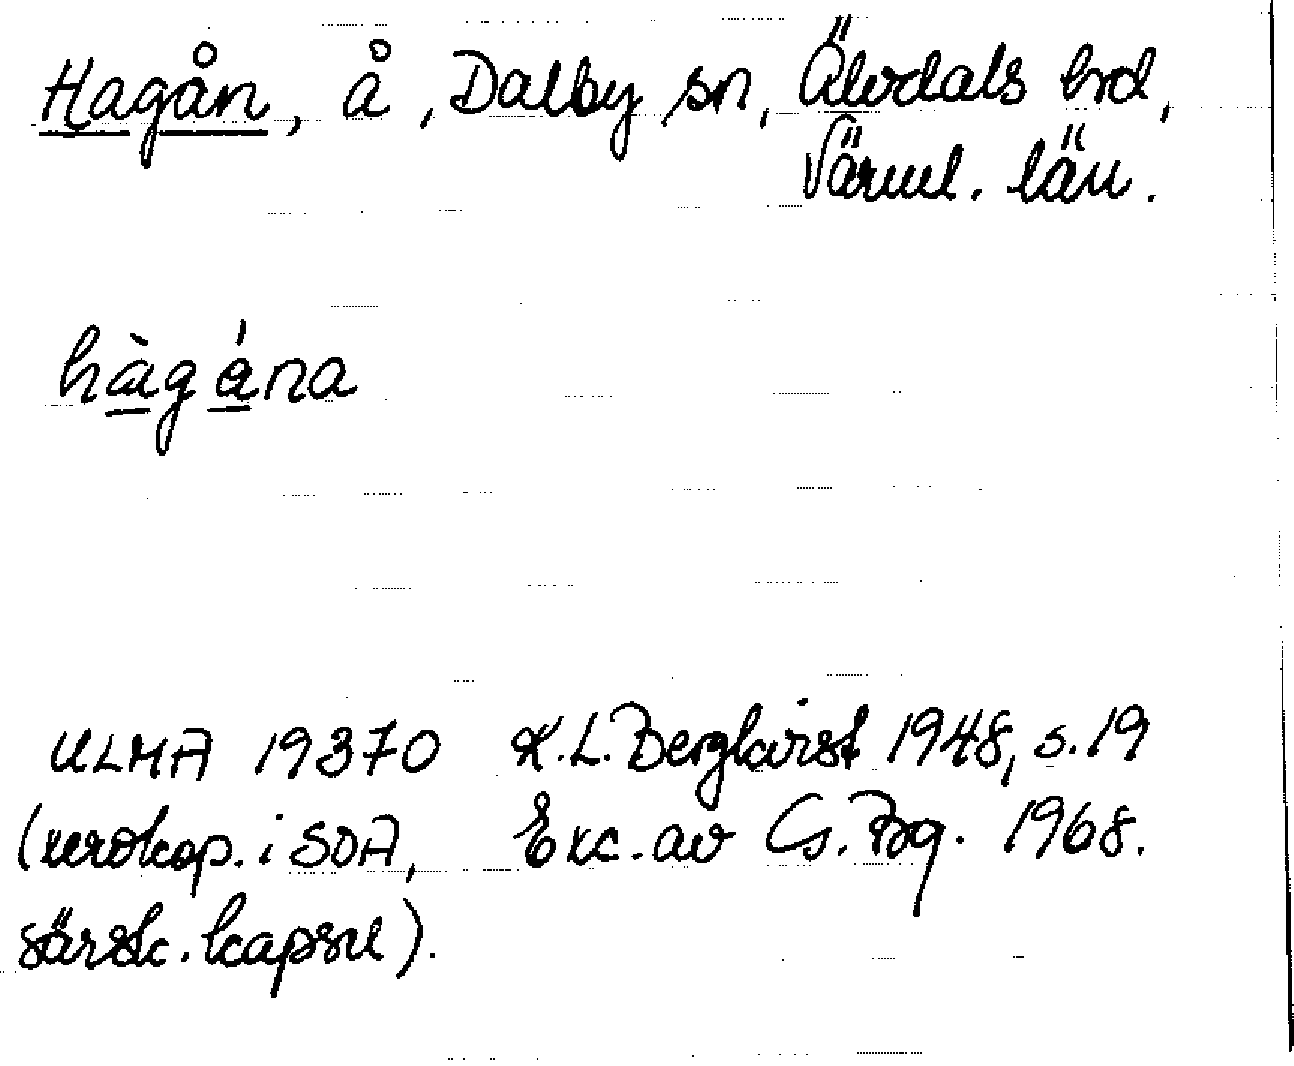 Hagån, å, Dalby sn, Älvdals hd,
Värml. län.
hàgána
ULMA 19370 K.L. Bergkvist 1948, s. 19
(xerokop. i SOA, Exc. av G. Bg. 1968.
särsk. kapsel).